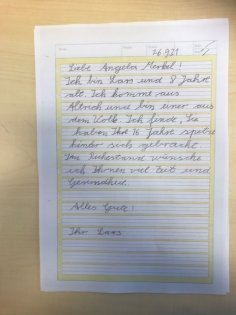 26.9.21
Liebe Angela Merkel!
Ich bin Lars und 8 Jahre
alt. Ich komme aus
Altrich und bin einer aus
dem Volk. Ich finde, Sie
haben Ihre 16 Jahre spitze
hinter sich gebracht.
Im Ruhestand wünsche
ich Ihnen viel Zeit und
Gesundheit.
Alles Gute!
Ihr Lars